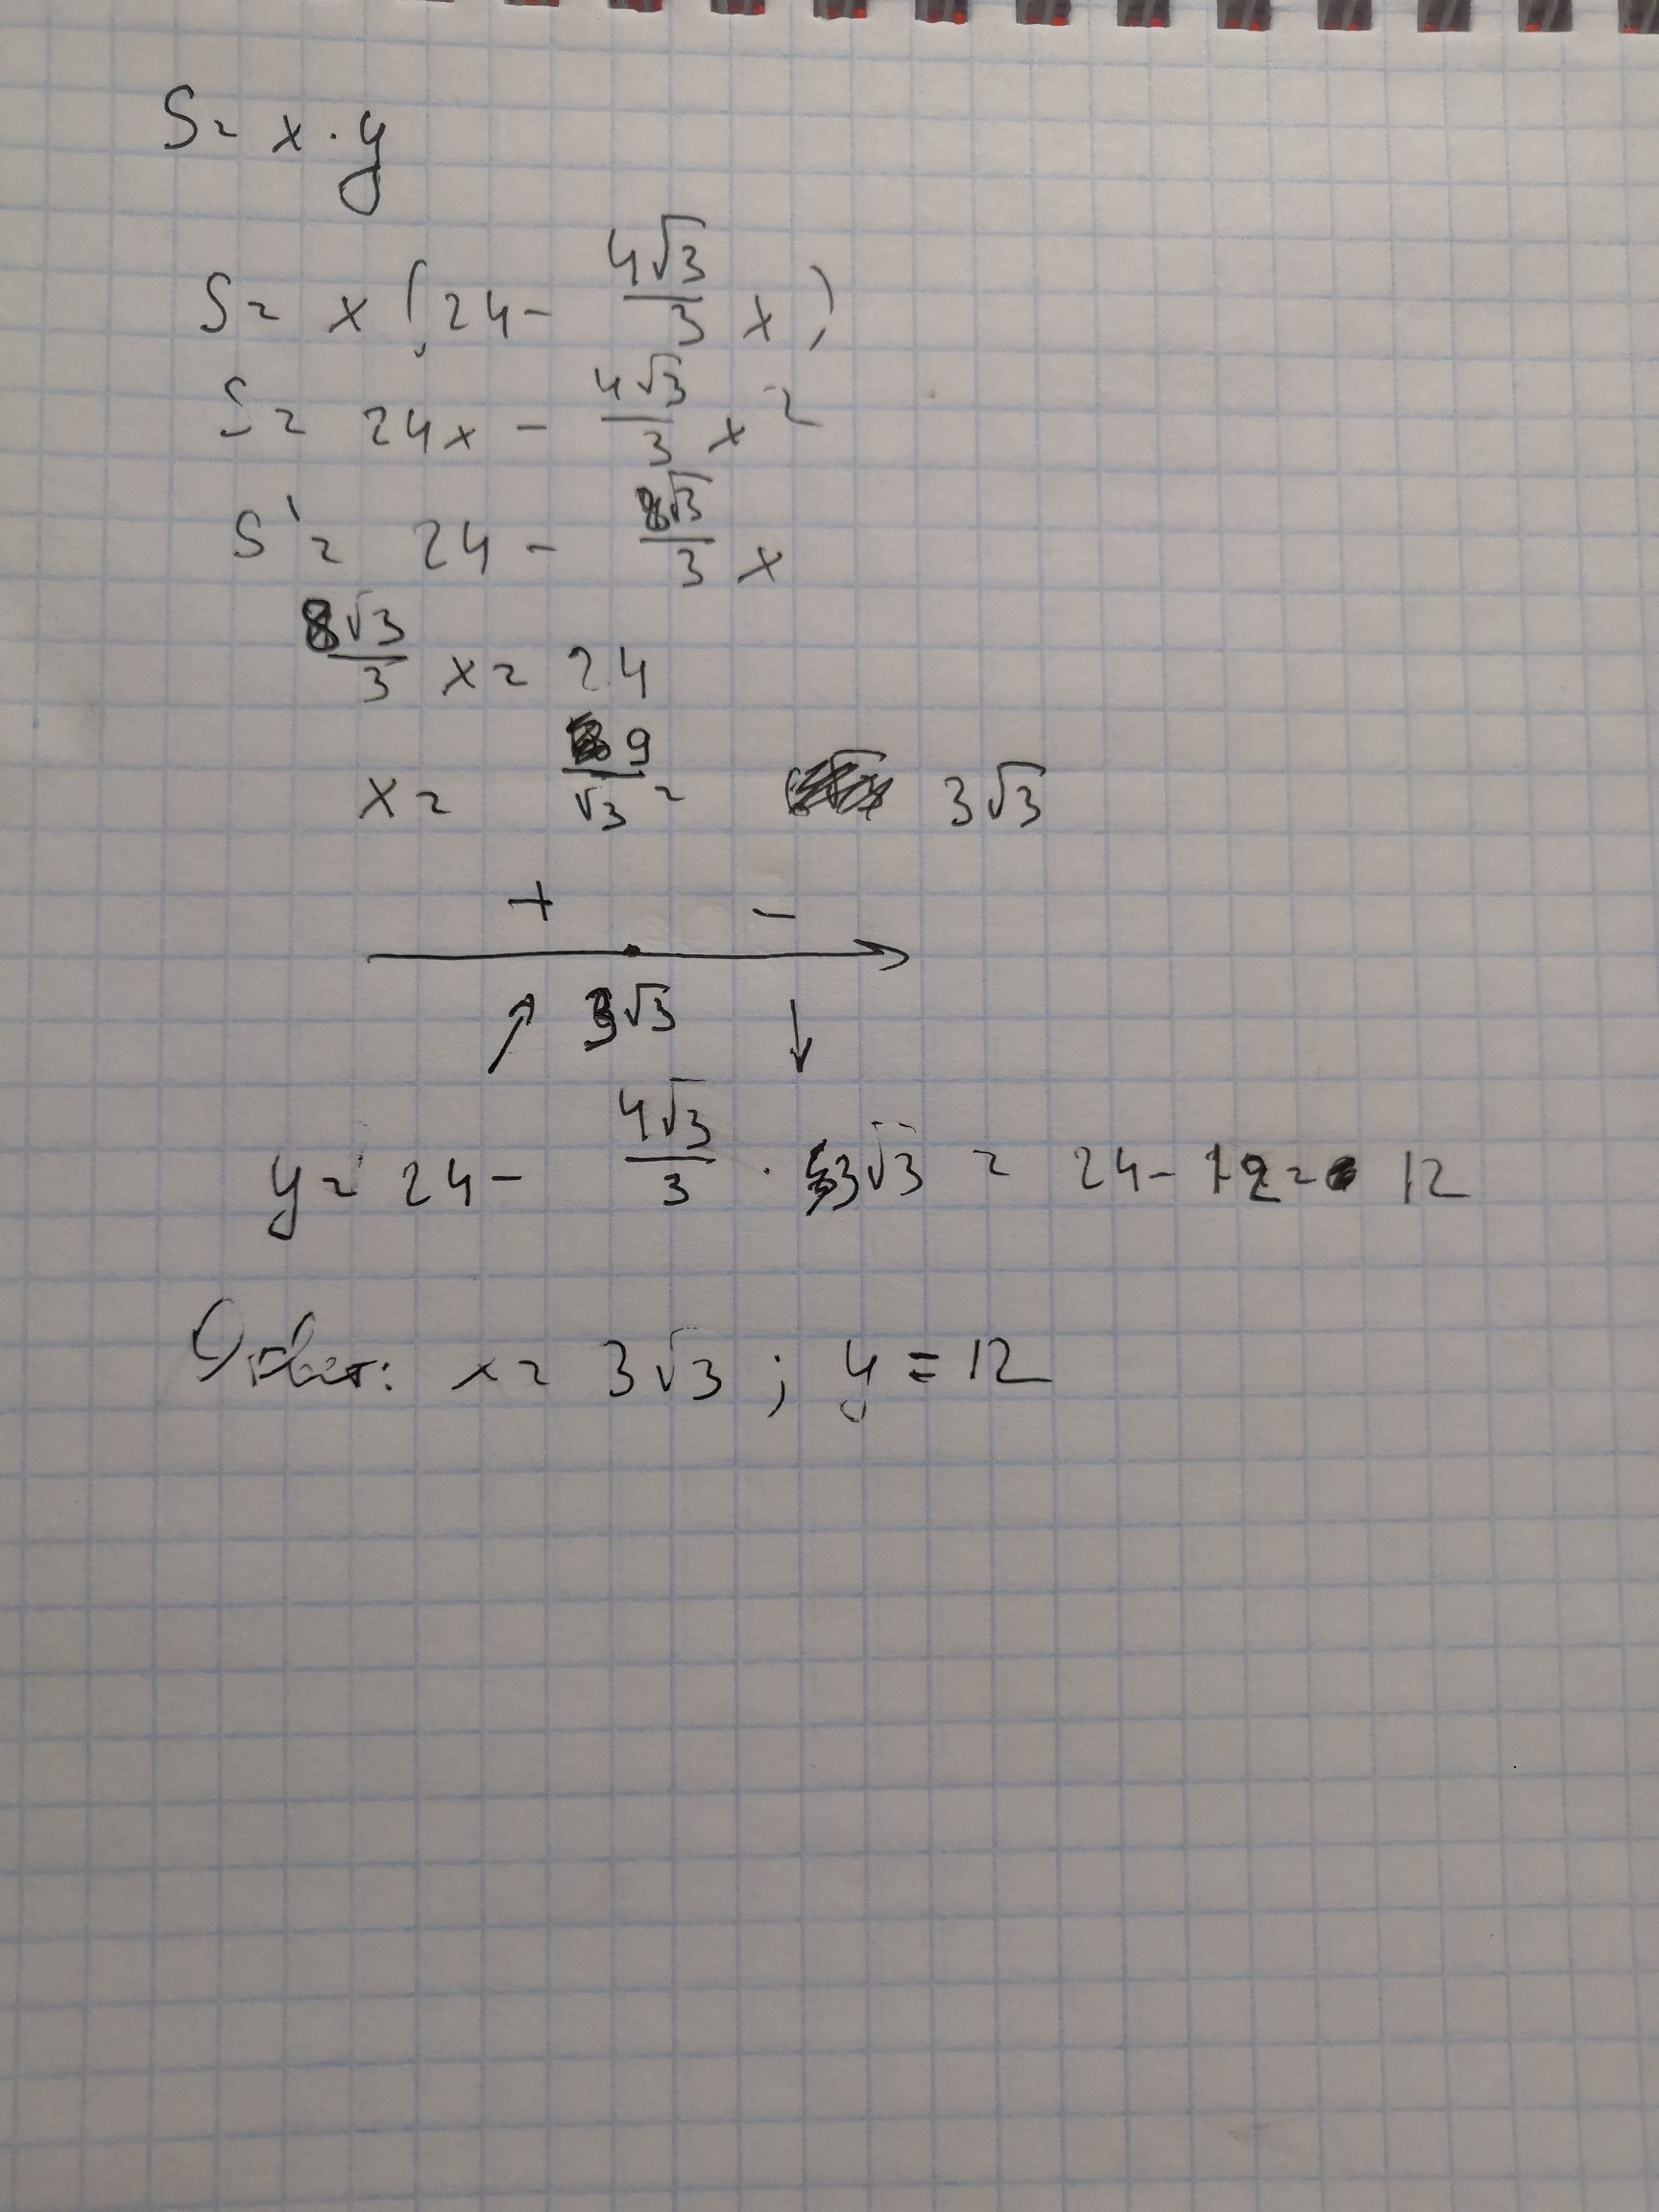 S = x · y
S = x (24 - 4√3/3 x)
S = 24x - 4√3/3 x²
S' = 24 - 8√3/3 x
8√3/3 x = 24
x = 9/√3 = 3√3
+ -
3√3
y = 24 - 4√3/3 · 3√3 = 24 - 12 = 12
Ответ: x = 3√3 ; y = 12